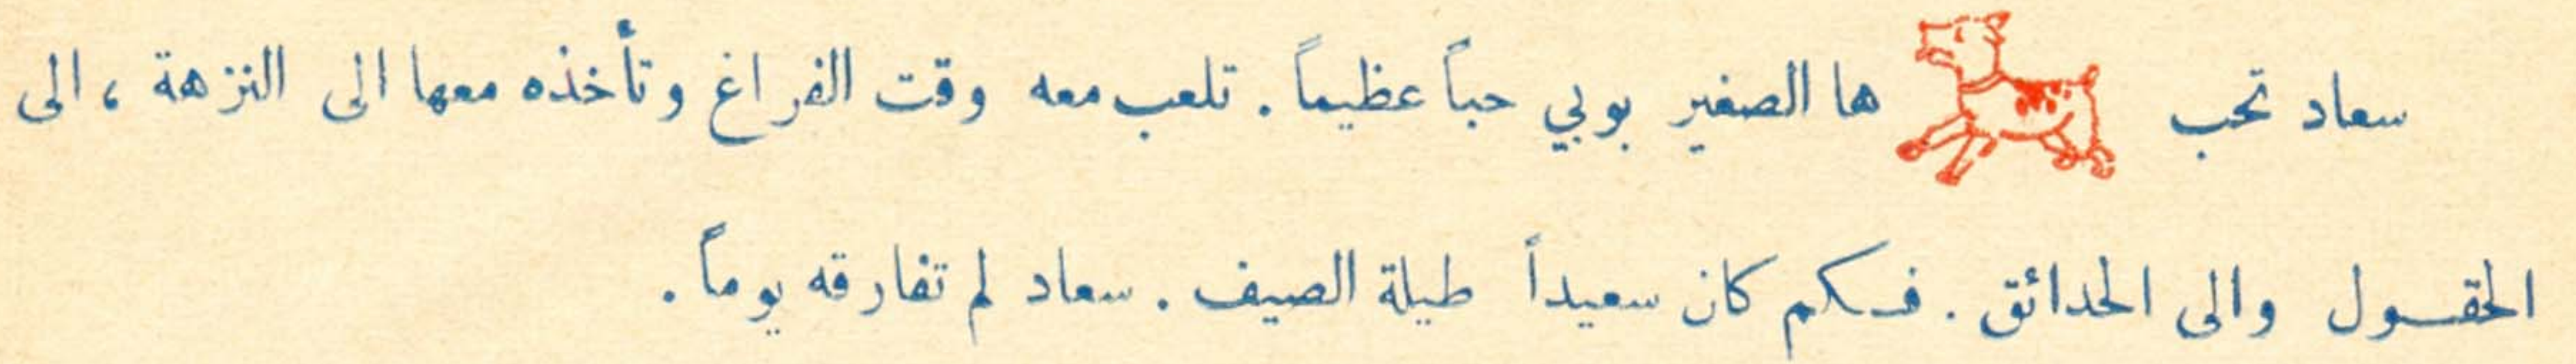 سعاد تحب ها الصغير بوبي حباً عظيماً. تلعب معه وقت الفراغ وتأخذه معها الى النزهة، الى
الحقول والى الحدائق. فكم كان سعيداً طيلة الصيف. سعاد لم تفارقه يوماً.